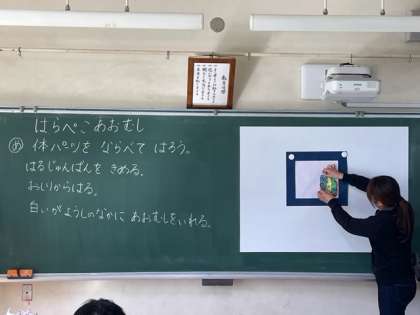 はらぺこあおむし
め 体パーツを ならべて はろう。
はるじゅんばんを きめる。
おしりからはる。
白いがようしのなかに あおむしをいれる。